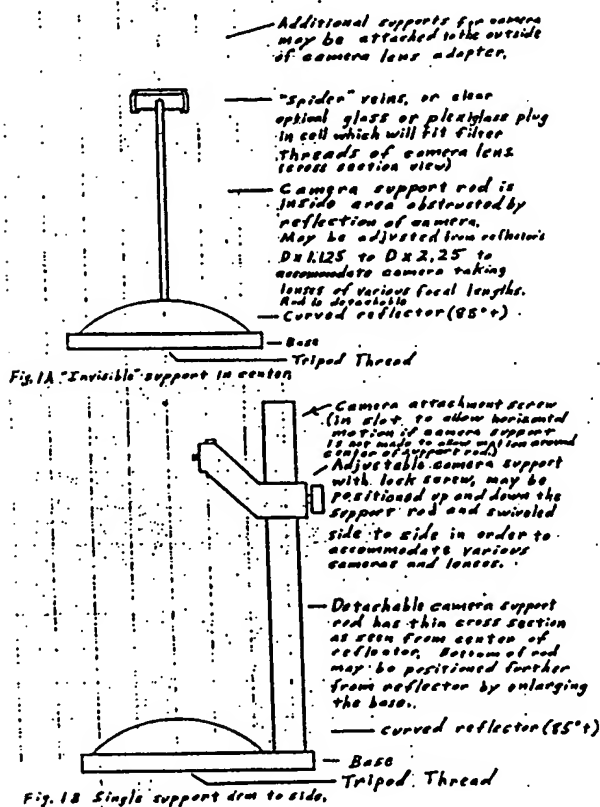 Additional supports for camera
may be attached to the outside
of camera lens adapter.
"Spider" veins, or clear
optical glass or plexiglass plug
in cell which will fit filter
threads of camera lens
(cross section view)
Camera support rod is
inside area obstructed by
reflection of camera.
May be adjusted from reflector's
D x 1.125 to D x 2.25 to
accommodate camera taking
lenses of various focal lengths.
Rod is detachable
Curved reflector (85°+)
Base
Tripod Thread
Fig. 1A "Invisible" support in center
Camera attachment screw
(in slot to allow horizontal
motion if camera support
is not made to allow motion around
center of support rod.)
Adjustable camera support
with lock screw, may be
positioned up and down the
support rod and swiveled
side to side in order to
accommodate various
cameras and lenses.
Detachable camera support
rod has thin cross section
as seen from center of
reflector. Bottom of rod
may be positioned further
from reflector by enlarging
the base.
curved reflector (85°+)
Base
Tripod Thread
Fig. 1B Single support arm to side.